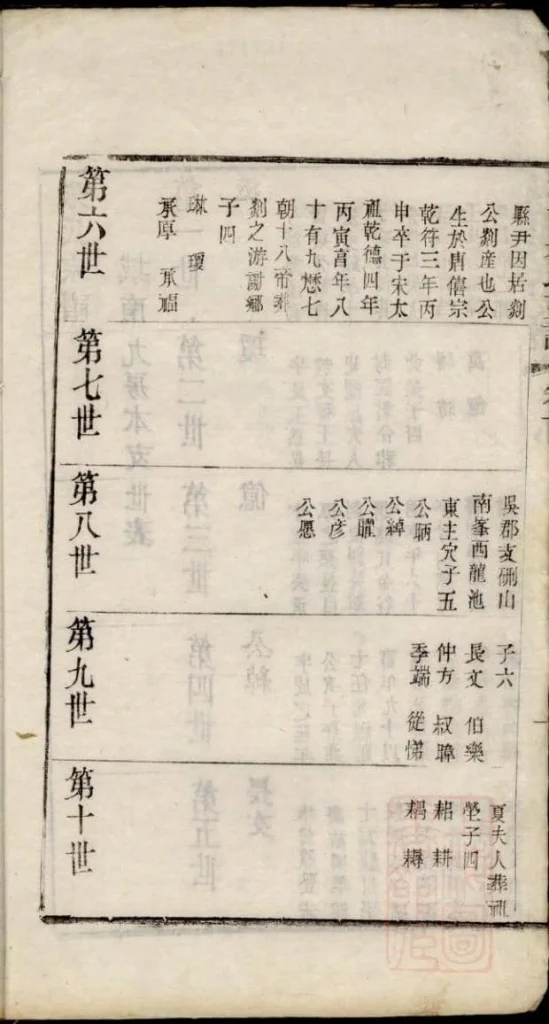 縣尹因居剡
公剡産也公
生於唐僖宗
乾符三年丙
申卒于宋太
祖乾德四年
丙寅言年八
十有九歷七
朝十八帝葬
剡之游謝鄉
子四
琳 瓊
承厚 承福
吳郡支硎山
南峯西龍池
東主穴子五
公炳
公綽
公曜
公彥
公愿
子六
長文 伯樂
仲方 叔暲
季端 從悌
夏夫人葬祔
塋子四
耜 耕
耦 耨
第六世
第七世
第八世
第九世
第十世